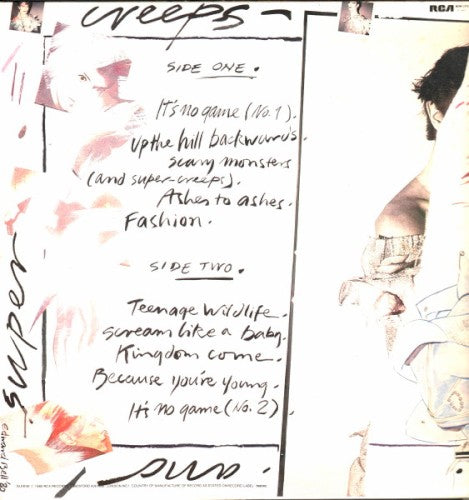 creeps
RCA
SIDE ONE.
It's no game (No. 1).
up the hill backwards.
scary monsters
(and super-creeps).
Ashes to ashes.
Fashion.
SIDE TWO.
Teenage wildlife.
scream like a baby.
Kingdom come.
Because you're young.
It's no game (No. 2).
super
and
edward Bell 80